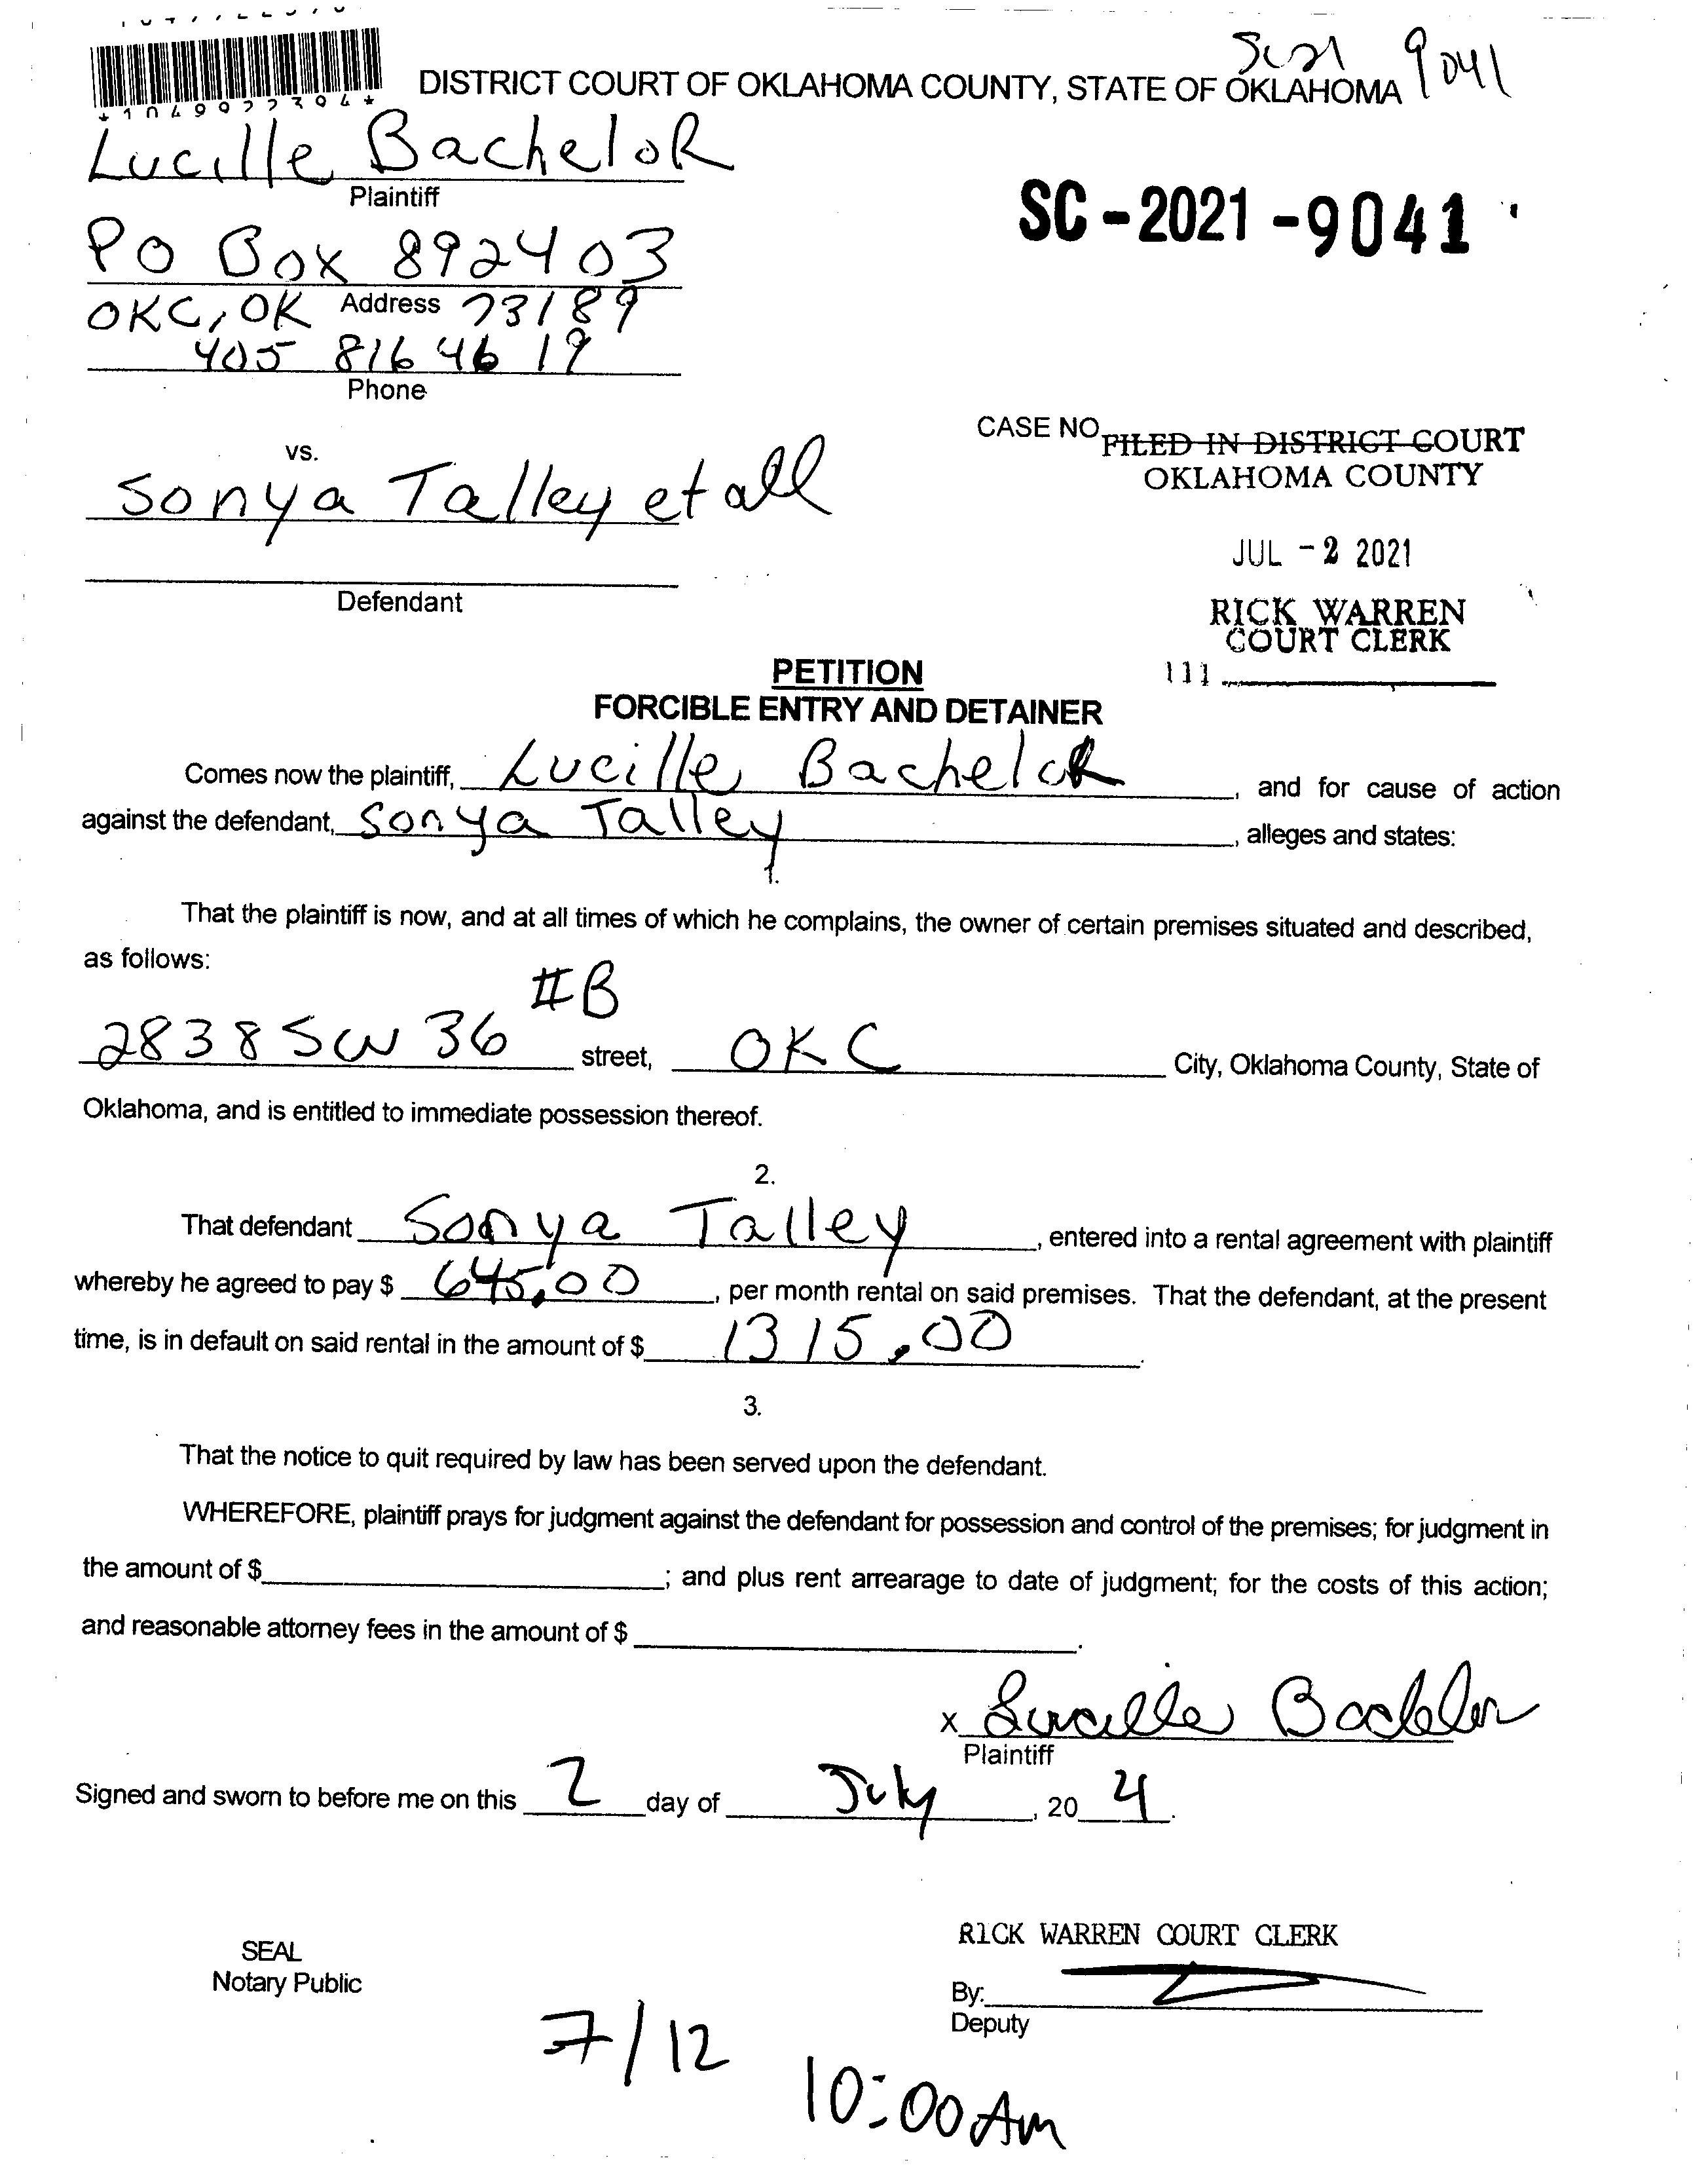 *1049922394*
SC21 9041
DISTRICT COURT OF OKLAHOMA COUNTY, STATE OF OKLAHOMA
Lucille Bachelor
Plaintiff
SC-2021-9041
PO Box 892403
Address
OKC, OK 73189
405 816 46 19
Phone
CASE NO.
FILED IN DISTRICT COURT
OKLAHOMA COUNTY
vs.
Sonya Talley et all
JUL -2 2021
Defendant
RICK WARREN
COURT CLERK
111
PETITION
FORCIBLE ENTRY AND DETAINER
Comes now the plaintiff, Lucille Bachelor, and for cause of action
against the defendant, Sonya Talley, alleges and states:
1.
That the plaintiff is now, and at all times of which he complains, the owner of certain premises situated and described,
as follows:
#B
2838 SW 36 street, OKC City, Oklahoma County, State of
Oklahoma, and is entitled to immediate possession thereof.
2.
That defendant Sonya Talley, entered into a rental agreement with plaintiff
whereby he agreed to pay $ 645.00, per month rental on said premises. That the defendant, at the present
time, is in default on said rental in the amount of $ 1315.00.
3.
That the notice to quit required by law has been served upon the defendant.
WHEREFORE, plaintiff prays for judgment against the defendant for possession and control of the premises; for judgment in
the amount of $ ; and plus rent arrearage to date of judgment; for the costs of this action;
and reasonable attorney fees in the amount of $ .
x Lucille Bachelor
Plaintiff
Signed and sworn to before me on this 2 day of July, 20 21.
RICK WARREN COURT CLERK
SEAL
Notary Public
By:
Deputy
7/12
10:00 Am